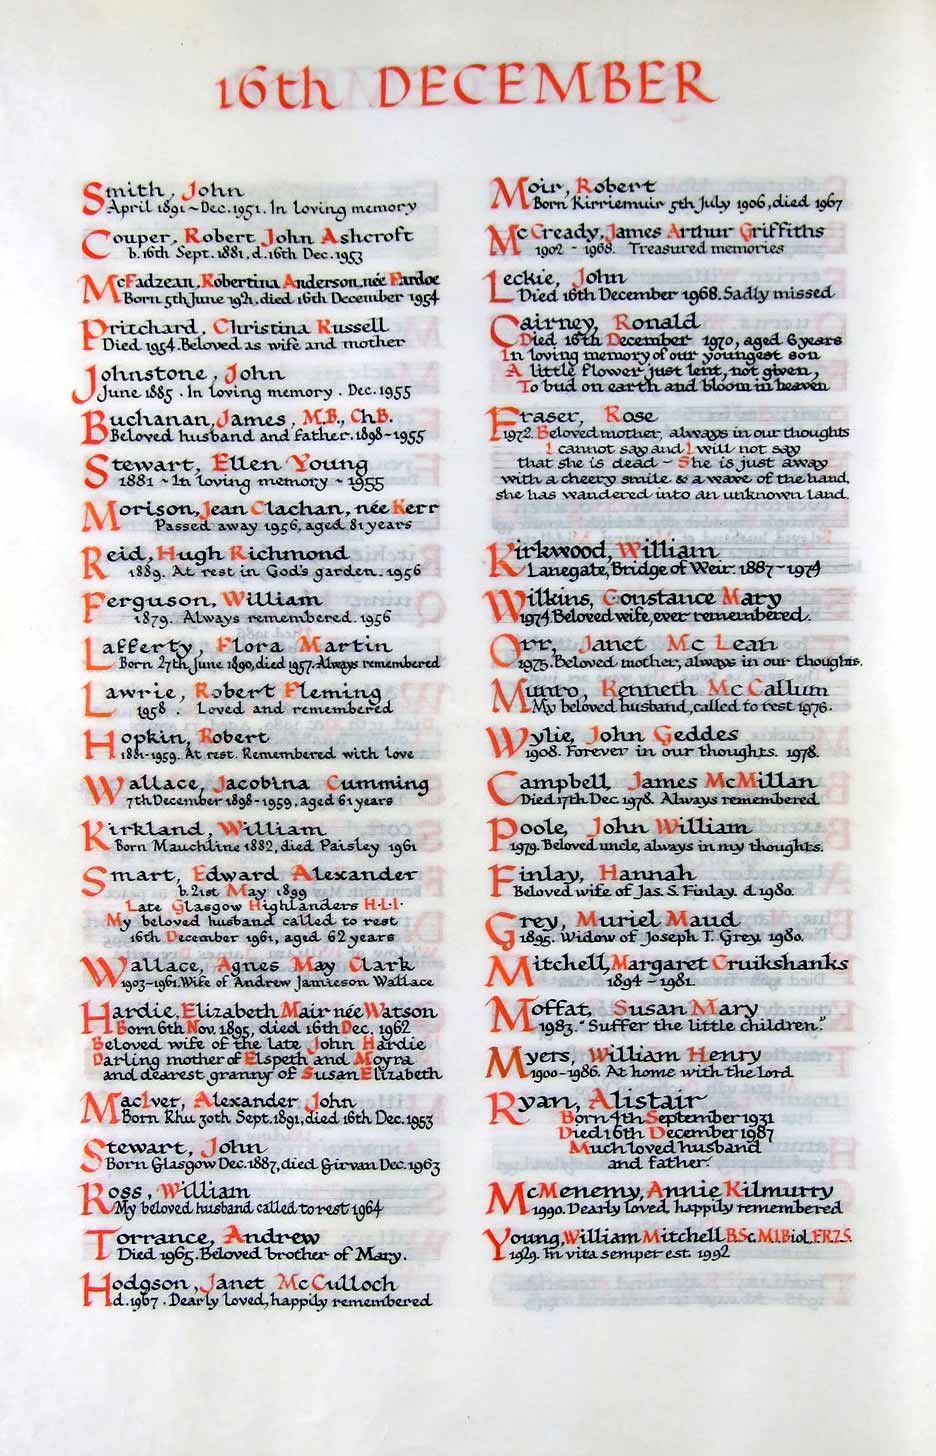 16th DECEMBER
Smith, John
April 1891~Dec.1951. In loving memory
Couper, Robert John Ashcroft
b.16th Sept.1881, d.16th Dec.1953
McFadzean, Robertina Anderson, née Fardoe
Born 5th June 1921, died 16th December 1954
Pritchard, Christina Russell
Died 1954. Beloved as wife and mother
Johnstone, John
June 1885 . In loving memory . Dec. 1955
Buchanan, James, M.B., Ch.B.
Beloved husband and father. 1898~1955
Stewart, Ellen Young
1881 ~ In loving memory ~ 1955
Morison, Jean Clachan, née Kerr
Passed away 1956, aged 81 years
Reid, Hugh Richmond
1889. At rest in God's garden. 1956
Ferguson, William
1879. Always remembered. 1956
Lafferty, Flora Martin
Born 27th June 1890, died 1957. Always remembered
Lawrie, Robert Fleming
1958 . Loved and remembered
Hopkin, Robert
1881-1959. At rest. Remembered with love
Wallace, Jacobina Cumming
7th December 1898-1959, aged 61 years
Kirkland, William
Born Mauchline 1882, died Paisley 1961
Smart, Edward Alexander
b. 21st May 1899
Late Glasgow Highlanders H.L.I.
My beloved husband called to rest
16th December 1961, aged 62 years
Wallace, Agnes May Clark
1903-1961. Wife of Andrew Jamieson Wallace
Hardie, Elizabeth Mair née Watson
Born 6th Nov. 1895, died 16th Dec. 1962
Beloved wife of the late John Hardie
Darling mother of Elspeth and Moyra
and dearest granny of Susan Elizabeth
MacIver, Alexander John
Born Rhu 30th Sept. 1891, died 16th Dec. 1953
Stewart, John
Born Glasgow Dec. 1887, died Girvan Dec. 1963
Ross, William
My beloved husband called to rest 1964
Torrance, Andrew
Died 1965. Beloved brother of Mary.
Hodgson, Janet McCulloch
d. 1967 . Dearly loved, happily remembered
Moir, Robert
Born Kirriemuir 5th July 1906, died 1967
McCready, James Arthur Griffiths
1902 - 1968. Treasured memories
Leckie, John
Died 16th December 1968. Sadly missed
Cairney, Ronald
Died 16th December 1970, aged 6 years
In loving memory of our youngest son
A little flower just lent, not given,
To bud on earth and bloom in heaven
Fraser, Rose
1972. Beloved mother, always in our thoughts
I cannot say and I will not say
that she is dead ~ She is just away
with a cheery smile & a wave of the hand,
she has wandered into an unknown land.
Kirkwood, William
Lanegate, Bridge of Weir. 1887~1974
Wilkins, Constance Mary
1974. Beloved wife, ever remembered.
Orr, Janet McLean
1975. Beloved mother, always in our thoughts.
Munro, Kenneth McCallum
My beloved husband, called to rest 1976.
Wylie, John Geddes
1908. Forever in our thoughts. 1978.
Campbell, James McMillan
Died 17th Dec. 1978. Always remembered.
Poole, John William
1979. Beloved uncle, always in my thoughts.
Finlay, Hannah
Beloved wife of Jas. S. Finlay. d 1980.
Grey, Muriel Maud
1895. Widow of Joseph T. Grey. 1980.
Mitchell, Margaret Cruikshanks
1894 ~ 1981.
Moffat, Susan Mary
1983. "Suffer the little children."
Myers, William Henry
1900-1986. At home with the Lord
Ryan, Alistair
Born 4th September 1931
Died 16th December 1987
Much loved husband
and father.
McMenemy, Annie Kilmurry
1990. Dearly loved, happily remembered
Young, William Mitchell B.Sc. M.I.Biol. F.R.Z.S.
1929. In vita semper est. 1992